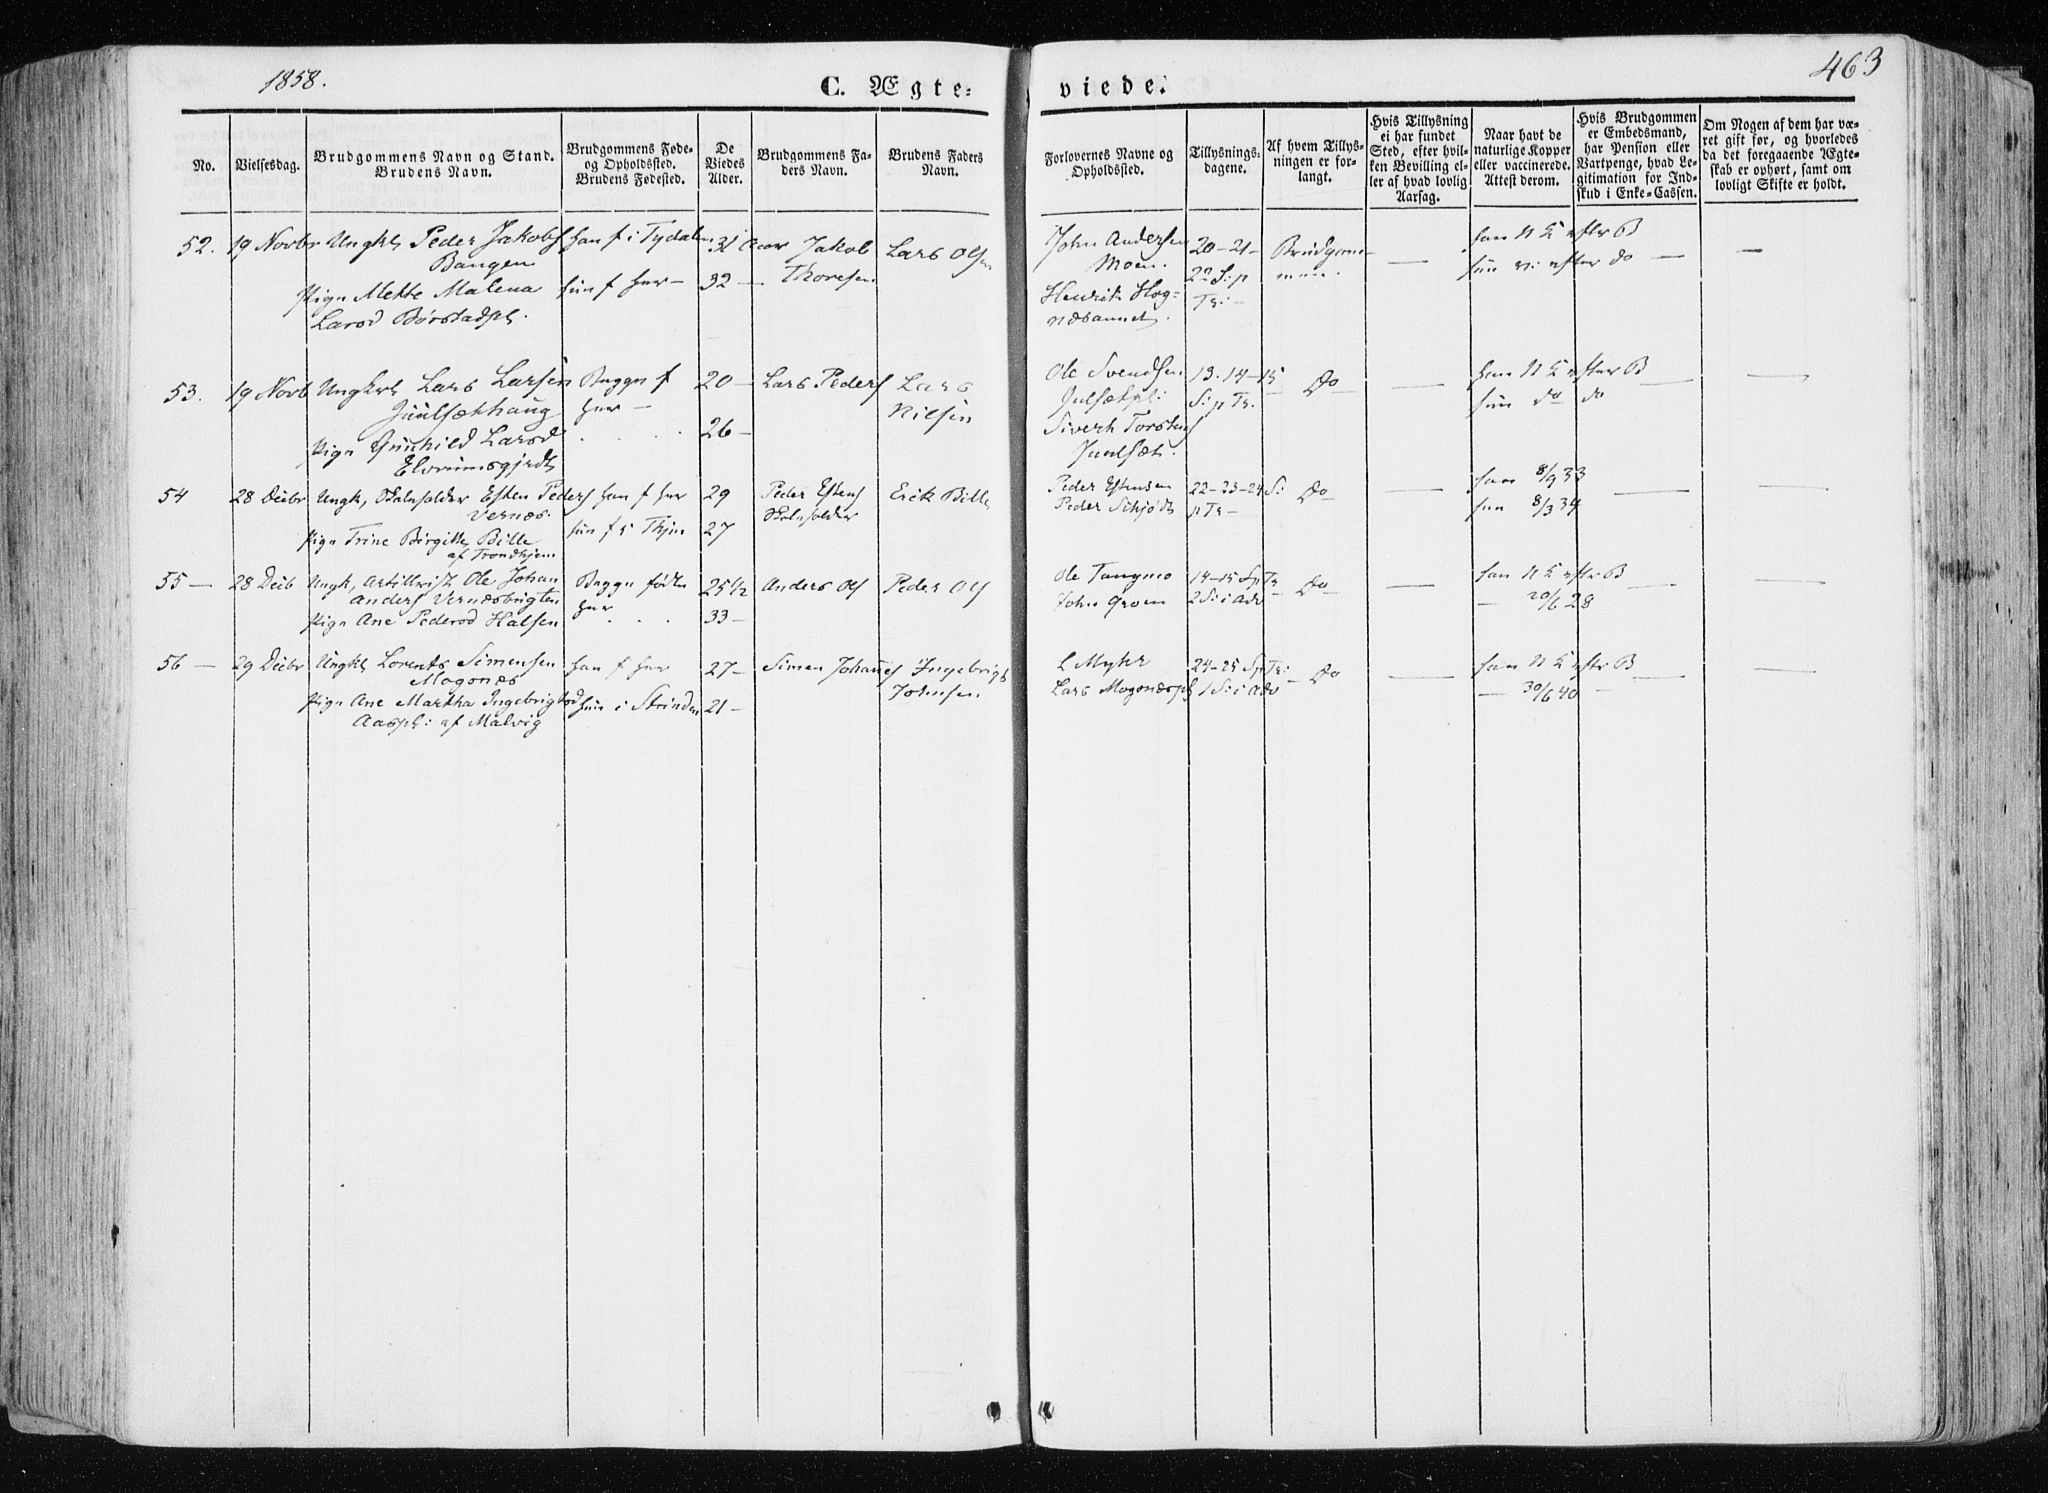 1858.
463
C. Ægte-
viede.
No.
Vielsesdag.
Brudgommens Navn og Stand.
Brudens Navn.
Brudgommens Føde-
og Opholdssted.
Brudens Fødested.
De
Viedes
Alder.
Brudgommens Fa-
ders Navn.
Brudens Faders
Navn.
Forlovernes Navne og
Opholdssted.
Tillysnings-
dagene.
Af hvem Tillys-
ningen er for-
langt.
Hvis Tillysning
ei har fundet
Sted, efter hvil-
ken Bevilling el-
ler af hvad lovlig
Aarsag.
Naar havt de
naturlige Kopper
eller vaccinerede.
Attest derom.
Hvis Brudgommen
er Embedsmand,
har Pension eller
Vartpenge, hvad Le-
gitimation for Ind-
skud i Enke-Cassen.
Om Nogen af dem har væ-
ret gift før, og hvorledes
da det foregaaende Ægte-
skab er ophørt, samt om
lovligt Skifte er holdt.
52. 19 Novbr
Ungk Peder Jakobs
Bangen
Pige Mette Malena
Larsd Børstadpl.
han f i Tydalen
hun f her —
31 Aar
32 —
Jakob
Thoresen
Lars Olsen
John Andersen
Moen.
Henrik Hog-
næsaunet.
20-21-
22 S: p
Tr: —
Brudgom-
men.
han N K eftr B
hun v: efter do —
53. 19 Novb
Ungkrl Lars Larsen
Juulsæthaug
Pige Gunhild Larsd
Elvrumsgjerdt
Begge f
her —
20 —
26 —
Lars Peders
Lars
Nilsen
Ole Svendsen
Julsætpl:
Sivert Torstens
Juulsæt.
13. 14-15
S: p Tr.
— Do —
han N K efter B
hun do do
54 28 Decbr
Ungk, Esten Peders
Vernæs.
Pige Trine Birgitte Bille
af Trondhjem
han f her
hun f i Thjem
29
27
Peder Estens
Erik Bille
Peder Estensen
Peder Schjødt
22-23-24 S:
p Tr —
Do
han 8/9 33
hun 8/3 34
55 — 28 Decb
Ungk, Artillerist Ole Johan
Anders Vernæsbugten
Pige Ane Pedersd Halsen
Begge fødte
her
25 1/2
33 —
Anders Ols
Peder Ols
Ole Tangmo
John Groen
14-15 S p Tr
2 S: i Adv
— Do
han N K eftr B —
— 20/6 28
56 — 29 Decbr
Ungk Lorents Simensen
Mogonæs
Pige Ane Martha Ingebrigtsd
Aaspl: af Malvig
han f her
hun i Strinden
27 —
21 —
Simen Johannes
Ingebrigt
Johnsen
L Myhr
Lars Mogonæspl
24-25 S p Tr:
1 S: i Adv
— Do
han N K eftr B
— 30/6 40 —